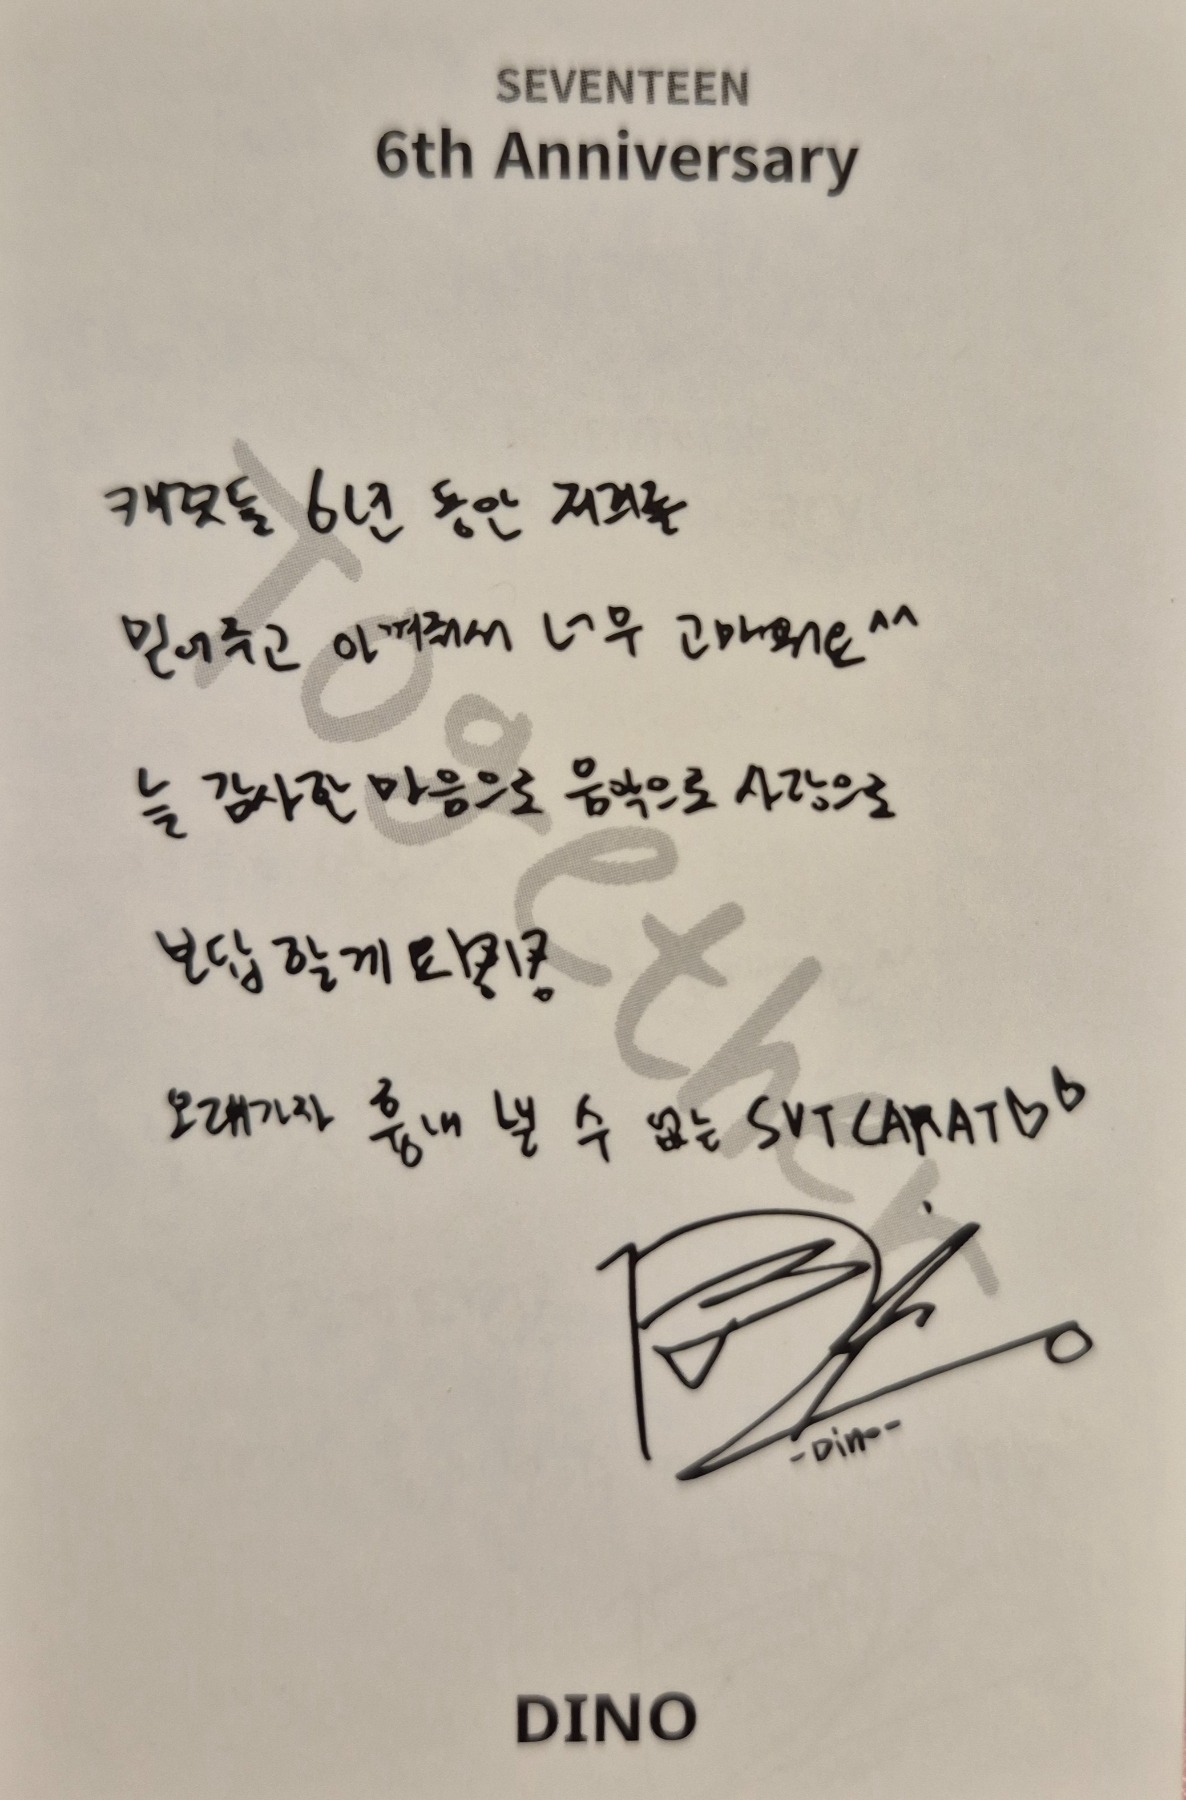 SEVENTEEN
6th Anniversary
캐럿들 6년 동안 저희를
믿어주고 아껴줘서 너무 고마워요^^
늘 감사한 마음으로 음악으로 사랑으로
보답할게요
오래가자 흉내 낼 수 없는 SVT CARAT♡♡
Together
-Dino-
DINO